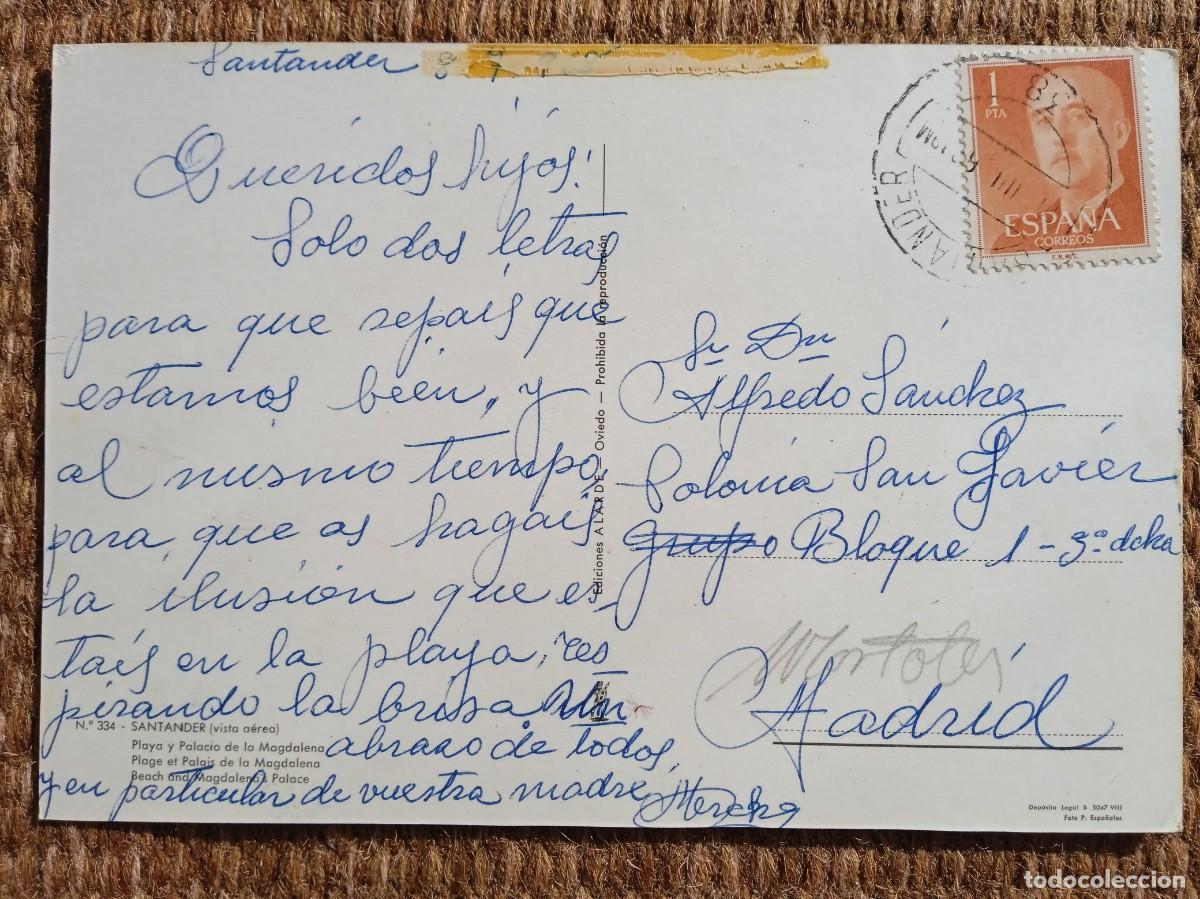 Santander 8 9
Queridos hijos!
Solo dos letras
para que sepais que
estamos bien, y
al mismo tiempo,
para, que os hagais
la ilusión que es-
tais en la playa, res
pirando la brisa Un
abrazo de todos,
y en particular de vuestra madre,
Nº 334 - SANTANDER (vista aérea)
Playa y Palacio de la Magdalena
Plage et Palais de la Magdalena
Beach and Magdalena's Palace
Ediciones ALARDE Oviedo — Prohibida la reproducción
1
PTA
ESPAÑA
CORREOS
F.N.M.T.
Sr Dn
Alfredo Sánchez
Colonia San Javier
grupo Bloque 1 - 3º dcha
Móstoles
Madrid
Depósito Legal B 5047 VIII
Foto P. Españoles
todocoleccion